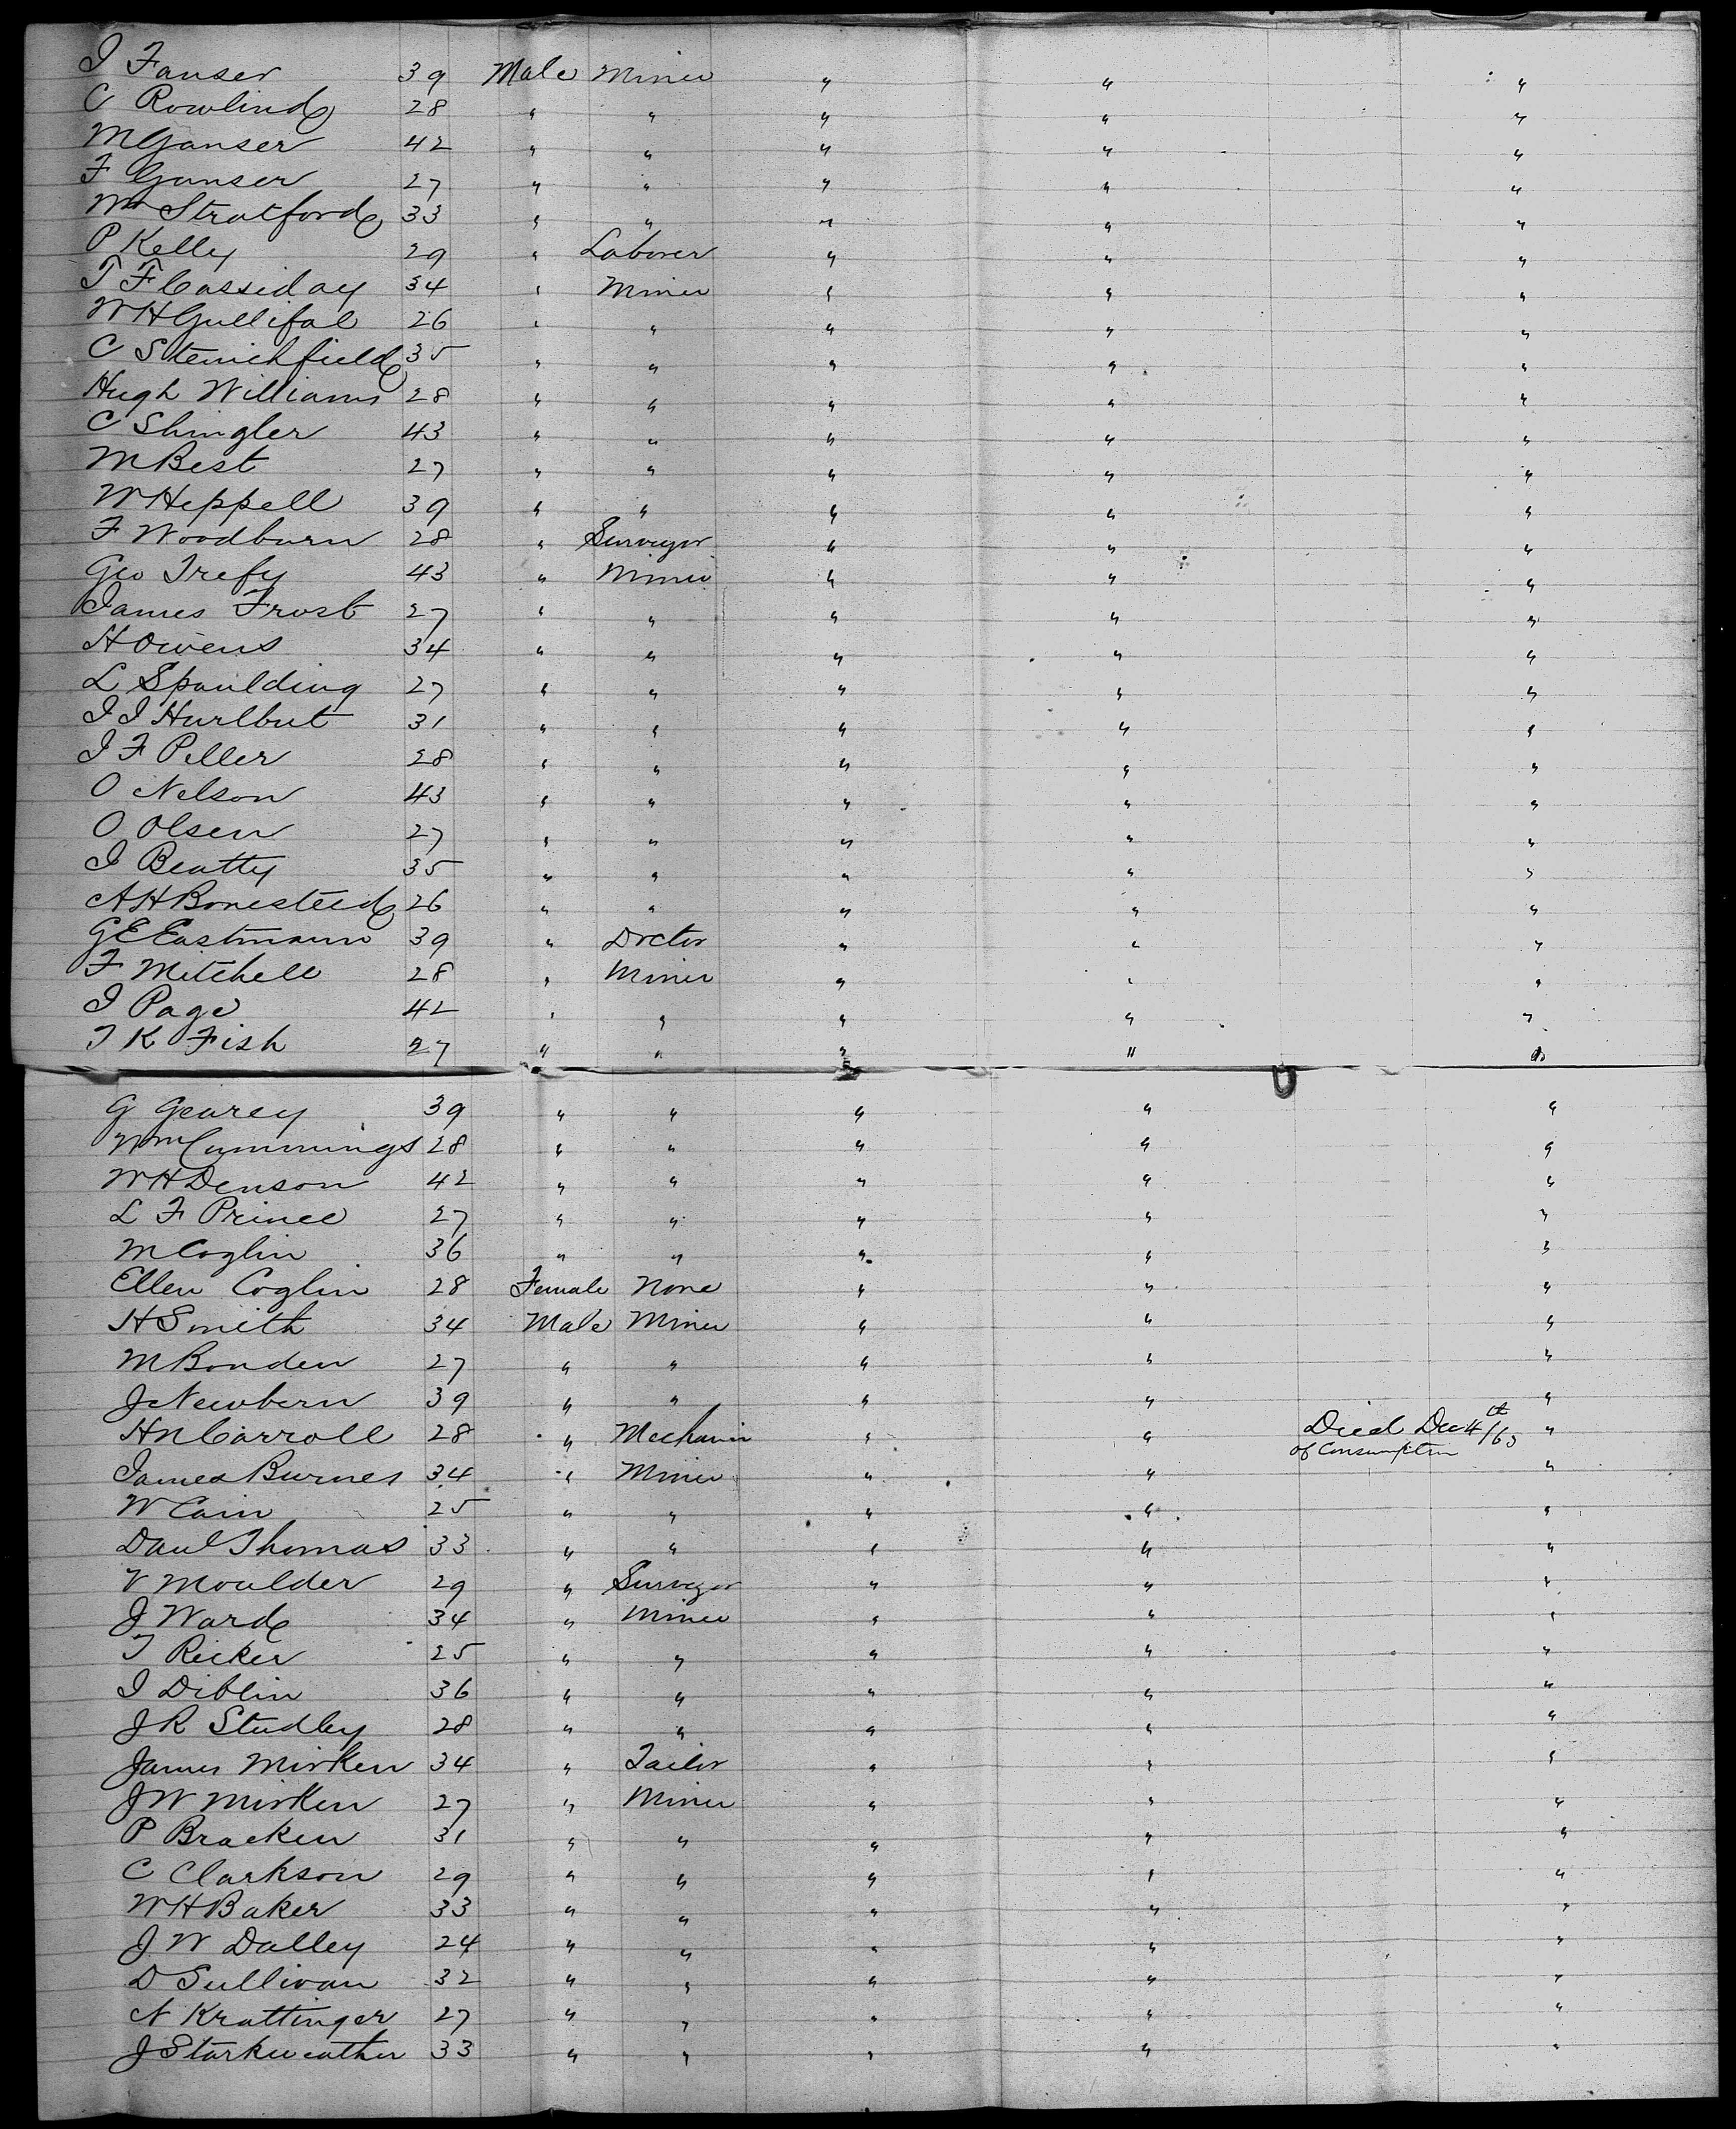 I Fauser 39 Male Miner " " "
C Rowlind 28 " " " " "
M Ganser 42 " " " " "
F Ganser 27 " " " " "
Wm Stratford 33 " " " " "
P Kelly 29 " Laborer " " "
T F Cassiday 34 " Miner " " "
W H Gullifal 26 " " " " "
C Stenichfield 35 " " " " "
Hugh Williams 28 " " " " "
C Shingler 43 " " " " "
M Best 27 " " " " "
W Heppell 39 " " " " "
F Woodburn 28 " Surveyor " " "
Geo Trefy 43 " Miner " " "
James Frost 27 " " " " "
H Owens 34 " " " " "
L Spaulding 27 " " " " "
I I Hurlbut 31 " " " " "
I F Peller 28 " " " " "
O Nelson 43 " " " " "
O Olsen 27 " " " " "
I Beatty 35 " " " " "
A H Bonesteed 26 " " " " "
G E Eastmann 39 " Doctor " " "
F Mitchell 28 " Miner " " "
I Page 42 " " " " "
T K Fish 27 " " " " "
G Gearey 39 " " " " "
Wm Cummings 28 " " " " "
W H Denson 42 " " " " "
L F Prince 27 " " " " "
M Coglin 36 " " " " "
Ellen Coglin 28 Female None " " "
H Smith 34 Male Miner " " "
M Bonden 27 " " " " "
J Newbern 39 " " " " "
H N Carroll 28 " Mechanic " " Died Dec 4th/63 "
of Consumption
James Burnes 34 " Miner " " "
W Cain 25 " " " " "
Danl Thomas 33 " " " " "
V Moulder 29 " Surveyor " " "
J Ward 34 " Miner " " "
T Ricker 25 " " " " "
I Diblin 36 " " " " "
J R Studley 28 " " " " "
James Mirken 34 " Tailor " " "
J W Mirken 27 " Miner " " "
P Bracken 31 " " " " "
C Clarkson 29 " " " " "
W H Baker 33 " " " " "
J W Dalley 24 " " " " "
D Sullivan 32 " " " " "
N Krattinger 27 " " " " "
J Starkweather 33 " " " " "